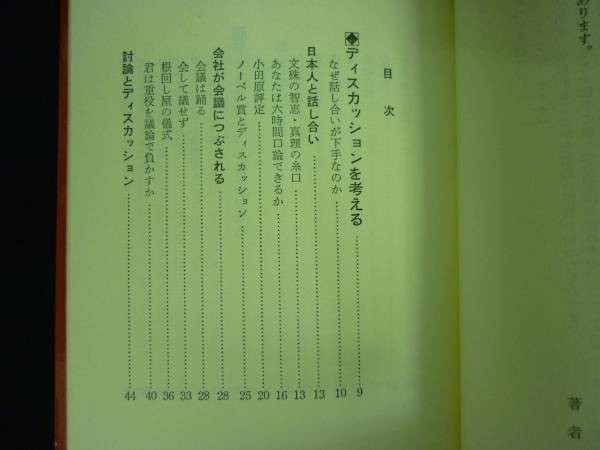 あります。
著者
目次
◆ディスカッションを考える……9
なぜ話し合いが下手なのか……10
日本人と話し合い……13
文殊の智恵・真理の糸口……13
あなたは六時間口論できるか……16
小田原評定……20
ノーベル賞とディスカッション……25
会社が会議につぶされる……28
会議は踊る……28
会して議せず……33
根回し屋の儀式……36
君は重役を議論で負かすか……40
討論とディスカッション……44